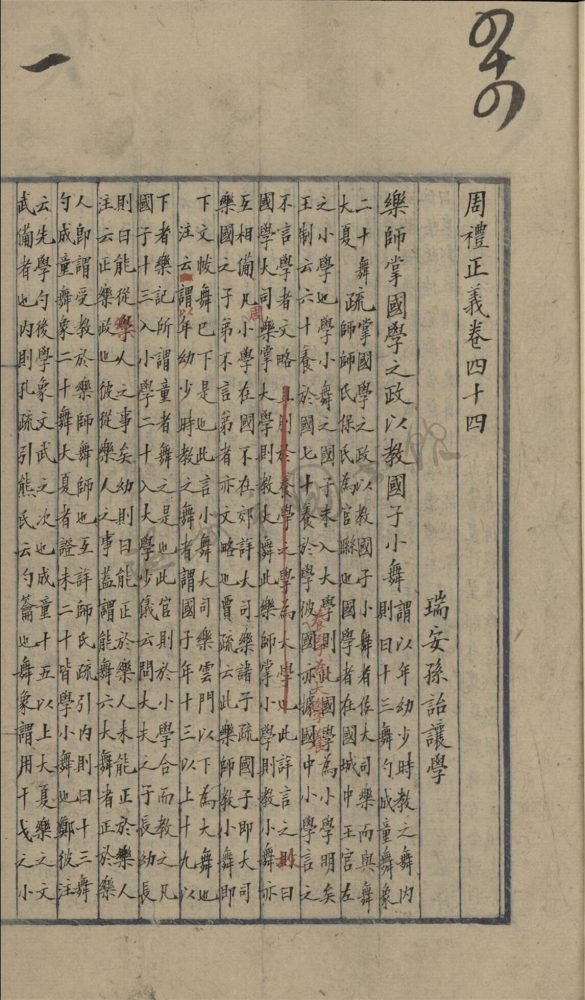 四十四
一
周禮正義卷四十四
瑞安孫詒讓學
樂師掌國學之政以教國子小舞謂以年幼少時教之舞內
則曰十三舞勺成童舞象
二十舞
大夏
疏掌國學之政以教國子小舞者佐大司樂而與舞
師師氏保氏為官聯也國學者在國城中王宮左
之小學也學小舞之國子未入大學則此國學為小學明矣
王制云六十養於國七十養於學彼國亦據國中小學言之
不言學者文略於養學之學為大學也此詳言之則曰
國學大司樂掌大學則教大舞此樂師掌小學則教小舞亦
互相備凡小學在國不在郊詳大司樂諸子疏國子即大司
樂國之子弟不言弟者亦文略也賈疏云此樂師教小舞即
下文帗舞已下是也此言小舞大司樂雲門以下為大舞也
注云謂以年幼少時教之舞者謂國子年十三以上十九以
下者樂記所謂童者舞之是也此官則於小學合而教之凡
國子十三入小學二十入大學少儀云問大夫之子長幼長
則曰能從樂人之事矣幼則曰能正於樂人未能正於樂人
注云正樂政也彼從樂人之事蓋謂能舞六大舞者正於樂
人即謂受教於樂師舞師也互詳師氏疏引內則曰十三舞
勺成童舞象二十舞大夏者證未二十皆學小舞也鄭彼注
云先學勺後學象文武之次也成童十五以上大夏樂之文
武備者也內則孔疏引熊氏云勺籥也舞象謂用干戈之小